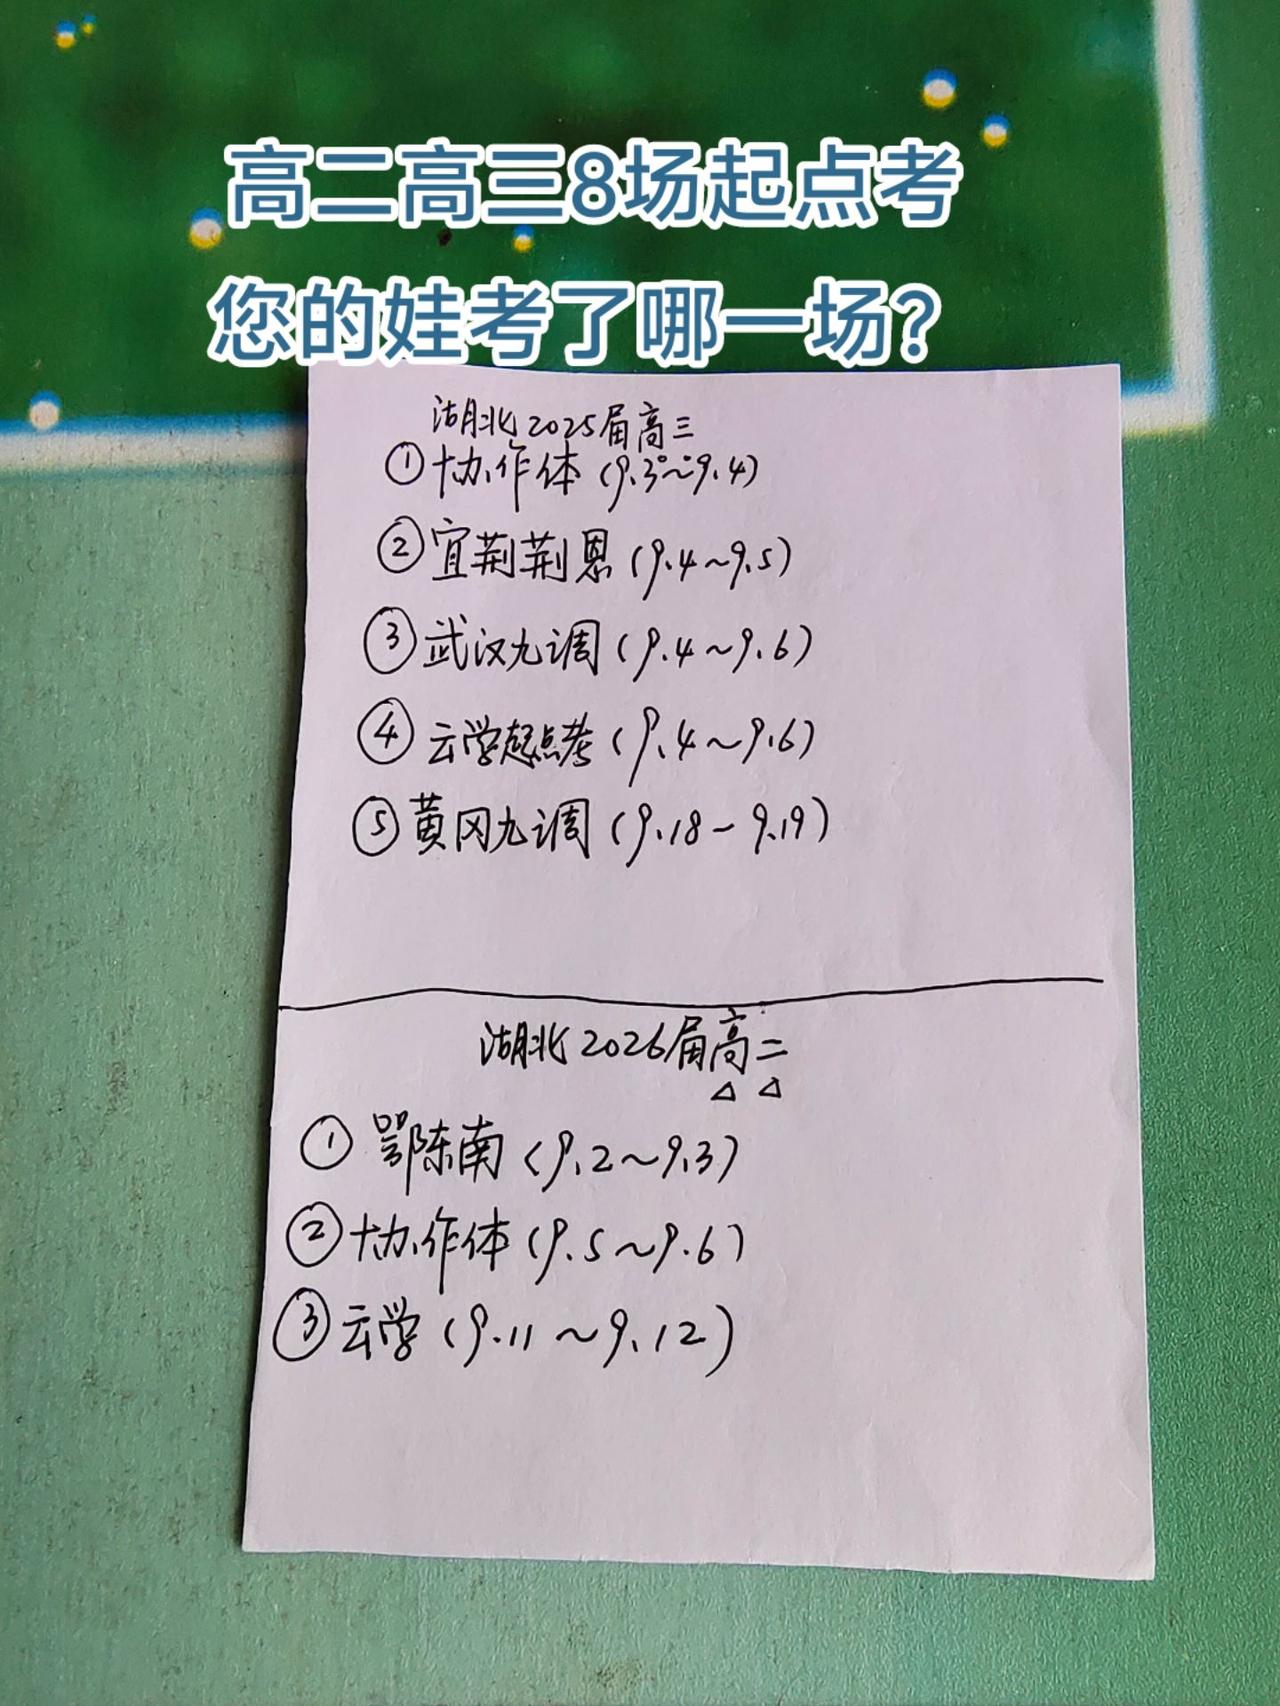 高二高三8场起点考
您的娃考了哪一场?
湖北2025届高三
①协作体(9.3~9.4)
②宜荆荆恩(9.4~9.5)
③武汉九调(9.4~9.6)
④云学起点考(9.4~9.6)
⑤黄冈九调(9.18-9.19)
湖北2026届高二
①鄂东南(9.2~9.3)
②协作体(9.5~9.6)
③云学(9.11~9.12)